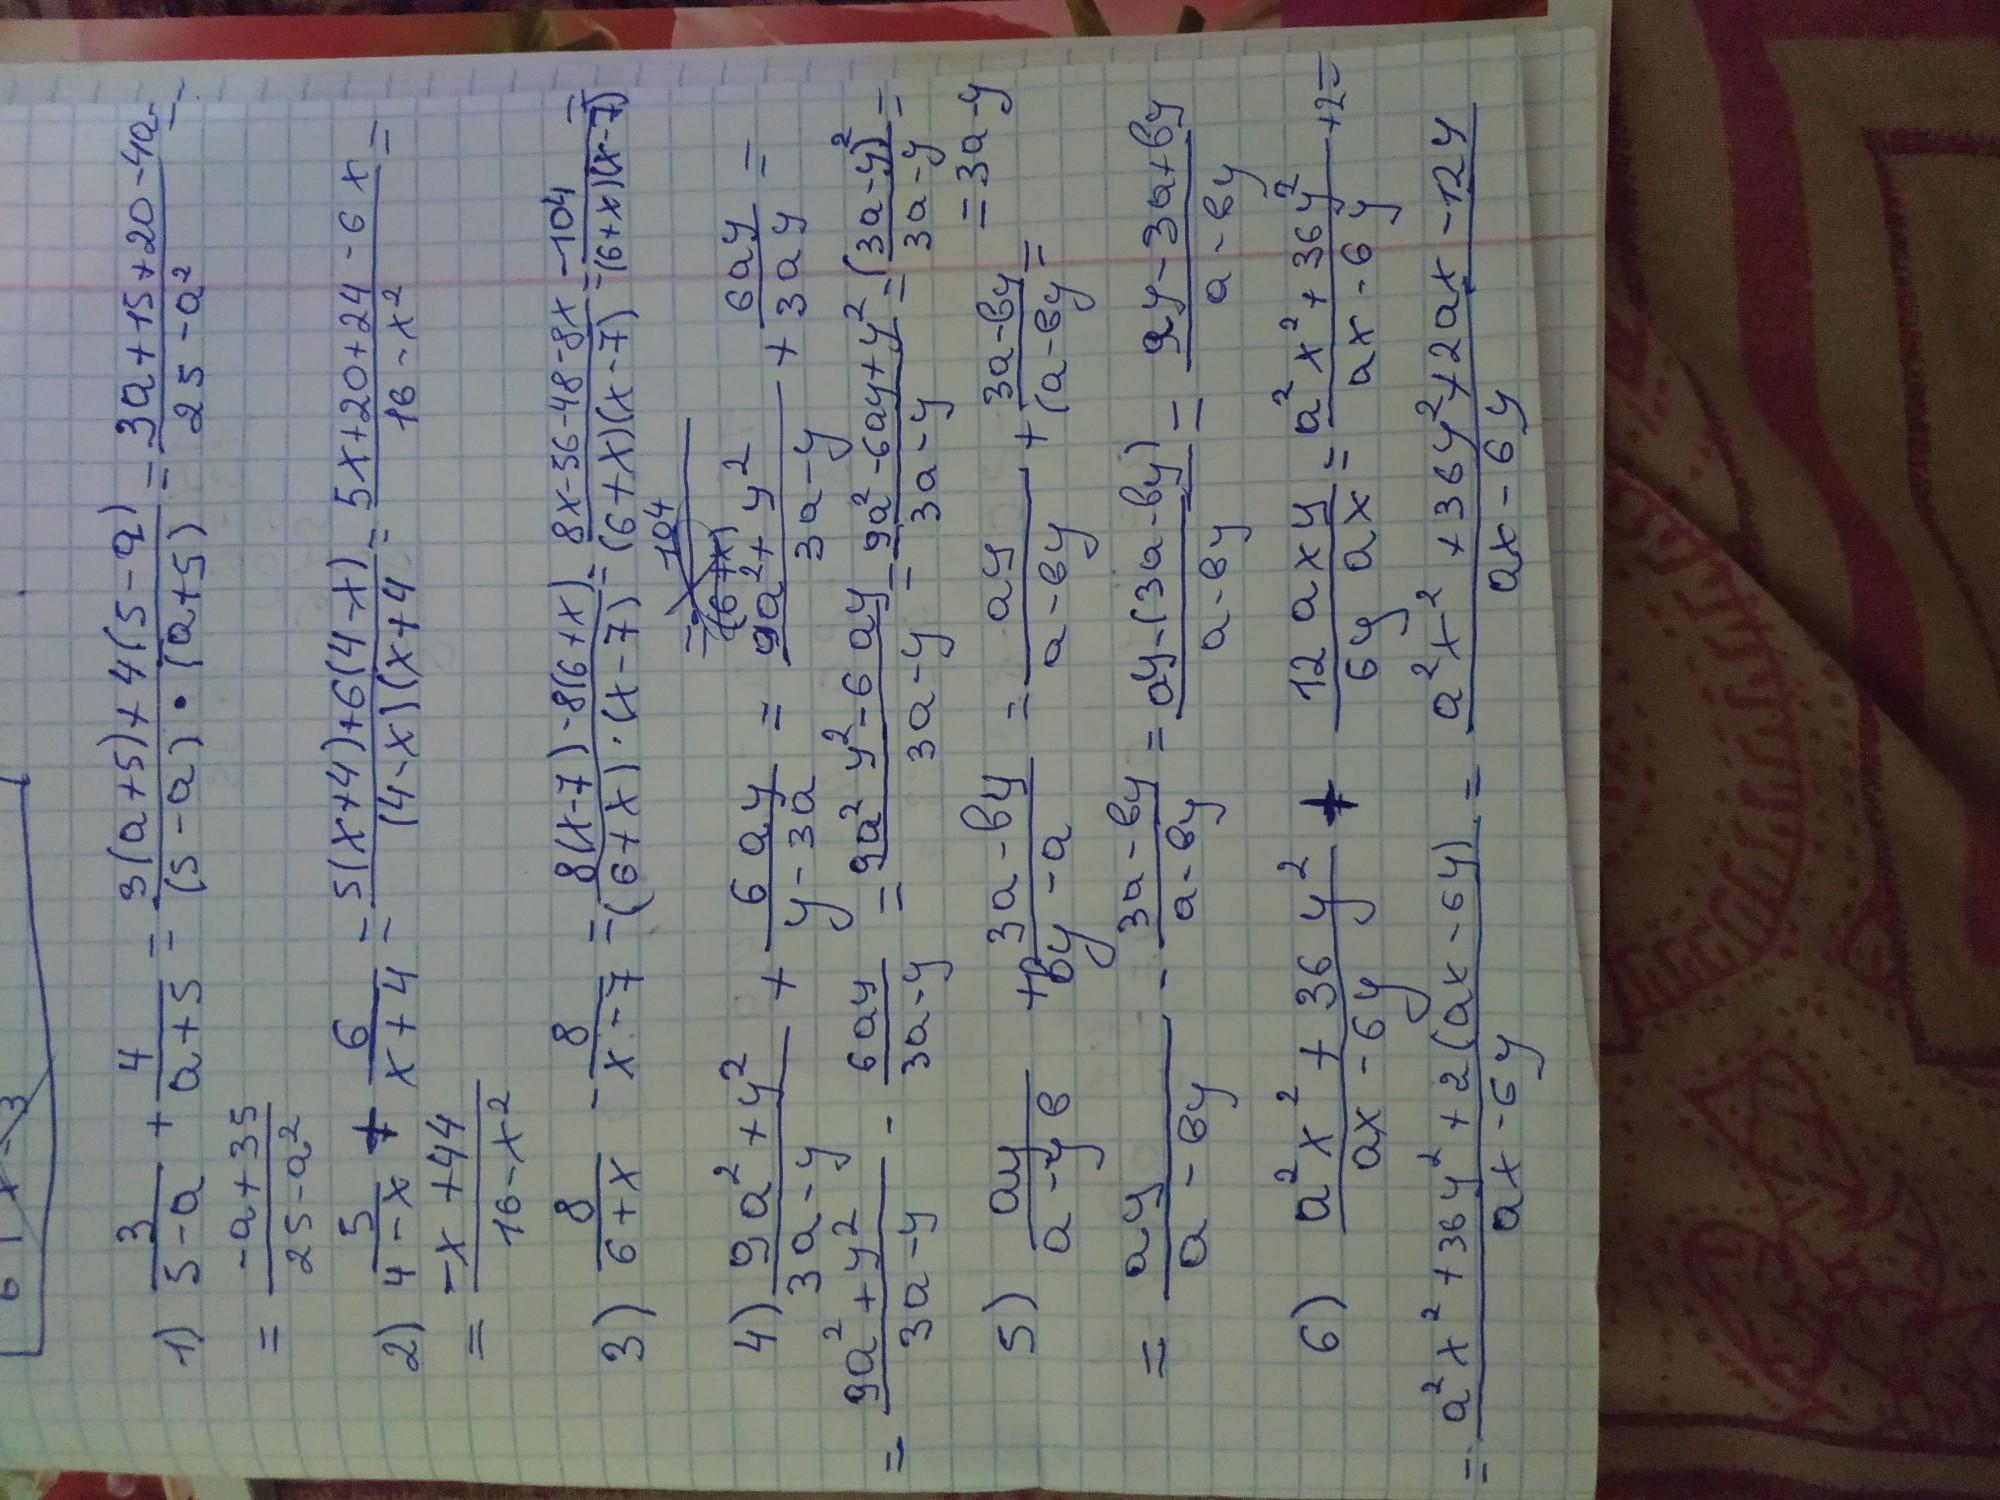 6 x - 3
1) 3/(5-a) + 4/(a+5) = (3(a+5)+4(5-a))/((5-a)·(a+5)) = (3a+15+20-4a)/(25-a²) =
= (-a+35)/(25-a²)
2) 5/(4-x) + 6/(x+4) = (5(x+4)+6(4-x))/((4-x)(x+4) = (5x+20+24-6x)/(16-x²) =
= (-x+44)/(16-x²)
3) 8/(6+x) - 8/(x-7) = (8(x-7)-8(6+x))/((6+x)·(x-7)) = (8x-56-48-8x)/((6+x)(x-7)) = -104/((6+x)(x-7))
= -104/(6+x)
4) (9a²+y²)/(3a-y) + 6ay/(y-3a) = (9a²+y²)/(3a-y) + 6ay/(3ay) =
= (9a²+y²)/(3a-y) - 6ay/(3a-y) = (9a²y²-6ay)/(3a-y) = (9a²-6ay+y²)/(3a-y) = (3a-y)²/(3a-y) =
= 3a-y
5) ay/(a-yв) + (3a-вy)/(вy-a) = ay/(a-вy) + (3a-вy)/(a-вy =
= ay/(a-вy) - (3a-вy)/(a-вy) = (ay-(3a-вy))/(a-вy) = (ay-3a+вy)/(a-вy)
6) (a²x²+36y²)/(ax-6y) + 12axy/(6y ax) = (a²x²+36y²)/(ax-6y) +2=
= (a²x²+36y²+2(ax-6y))/(ax-6y) = (a²x²+36y²+2ax-12y)/(ax-6y)